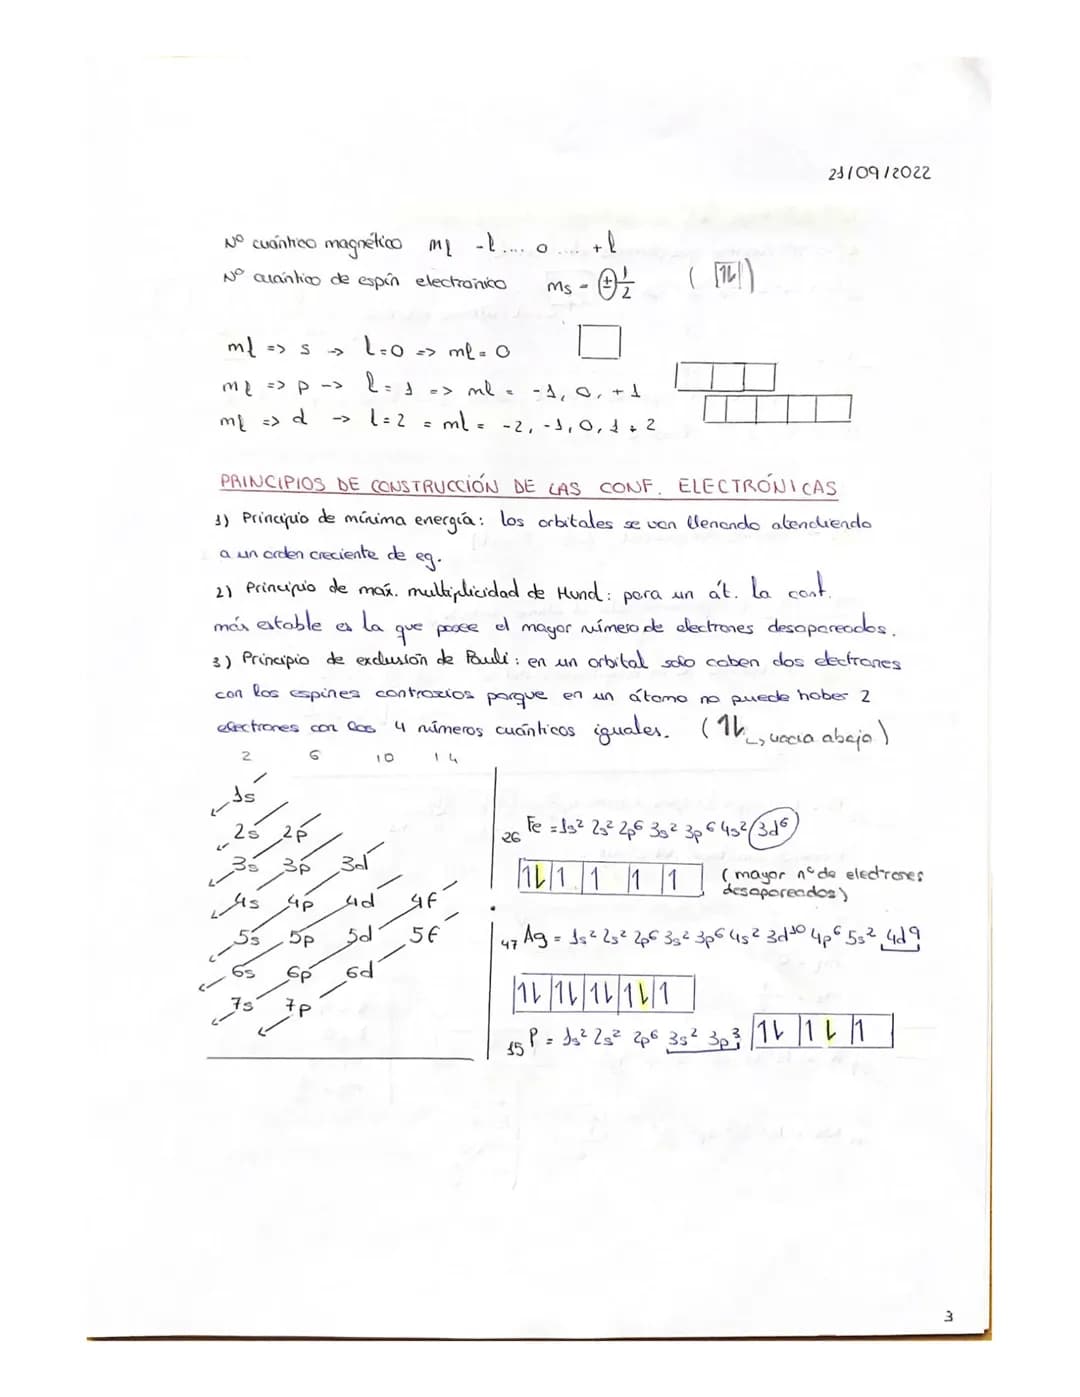 21/09/2022
Nº cuántico magnético ml -l.... 0 .... +l
Nº cuántico de espín electrónico ms = ± 1/2 ( 1⇂ )
ml => s -> l=0 => ml = 0
ml => p -> l=1 => ml = -1, 0, +1
ml => d -> l=2 = ml = -2, -1, 0, 1 + 2
PRINCIPIOS DE CONSTRUCCIÓN DE LAS CONF. ELECTRÓNICAS
1) Principio de mínima energía: los orbitales se van llenando atendiendo
a un orden creciente de eg.
2) Principio de máx. multiplicidad de Hund: para un át. la conf.
más estable es la que posee el mayor número de electrones desapareados.
3) Principio de exclusión de Pauli: en un orbital solo caben dos electrones
con los espines contrarios porque en un átomo no puede haber 2
electrones con los 4 números cuánticos iguales. (1⇂ ↳ hacia abajo)
2 6 10 14
1s
2s 2p
3s 3p 3d
4s 4p 4d 4f
5s 5p 5d 5f
6s 6p 6d
7s 7p
26 Fe = 1s² 2s² 2p⁶ 3s² 3p⁶ 4s² 3d⁶
1⇂ 1 1 1 1 (mayor nº de electrones
desapareados)
47 Ag = 1s² 2s² 2p⁶ 3s² 3p⁶ 4s² 3d¹⁰ 4p⁶ 5s² 4d⁹
1⇂ 1⇂ 1⇂ 1⇂ 1
15 P = 1s² 2s² 2p⁶ 3s² 3p³ 1⇂ 1⇂ 1
3